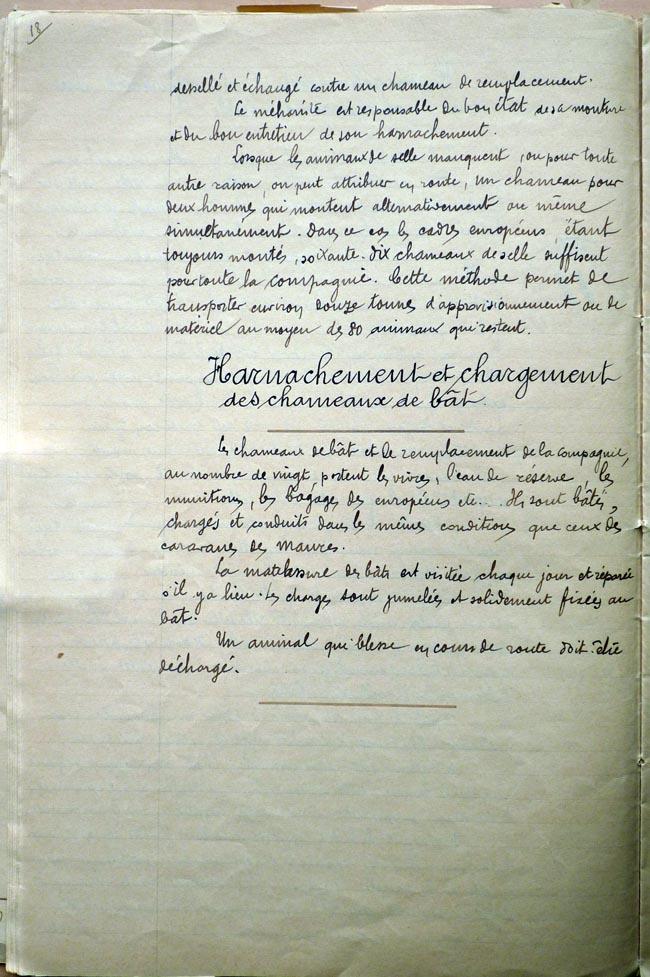 18
dessellé et échangé contre un chameau de remplacement.
Le méhariste est responsable du bon état de sa monture
et du bon entretien de son harnachement.
Lorsque les animaux de selle manquent, ou pour toute
autre raison, on peut attribuer en route, un chameau pour
deux hommes qui montent alternativement ou même
simultanement. Dans ce cas les cadres européens, étant
toujours montés, soixante-dix chameaux de selle suffisent
pour toute la compagnie. Cette méthode permet de
transporter environ douze tonnes d'approvisionnement ou de
matériel au moyen des 80 animaux qui restent.
Harnachement et chargement
des chameaux de bât.
Les chameaux de bât et de remplacement de la compagnie,
au nombre de vingt, portent les vivres, l'eau de réserve, les
munitions, les bagages des européens etc... Ils sont bâtés,
chargés et conduits dans les mêmes conditions que ceux des
caravanes des Maures.
La matelassure des bâts est visitée chaque jour et réparée
s'il y a lieu. Les charges sont jumelées et solidement fixées au
bât.
Un animal qui blesse en cours de route doit être
déchargé.